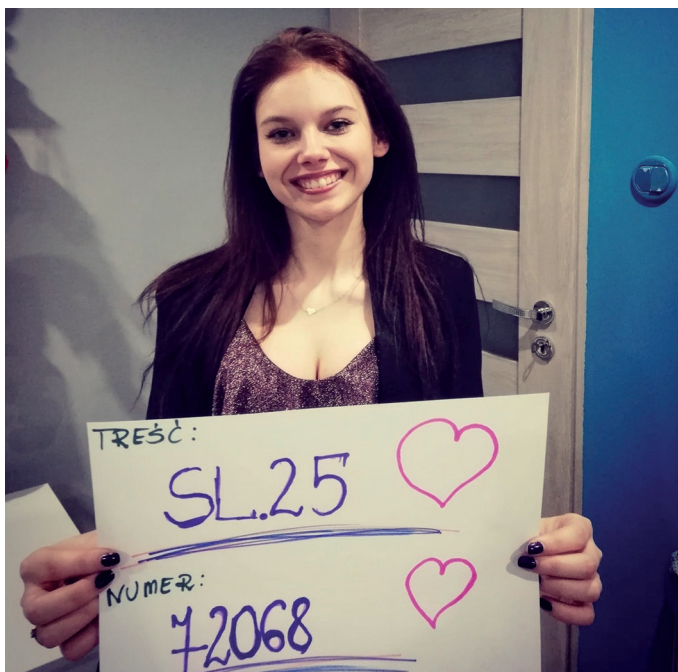 TREŚĆ:
SL.25
NUMER:
72068